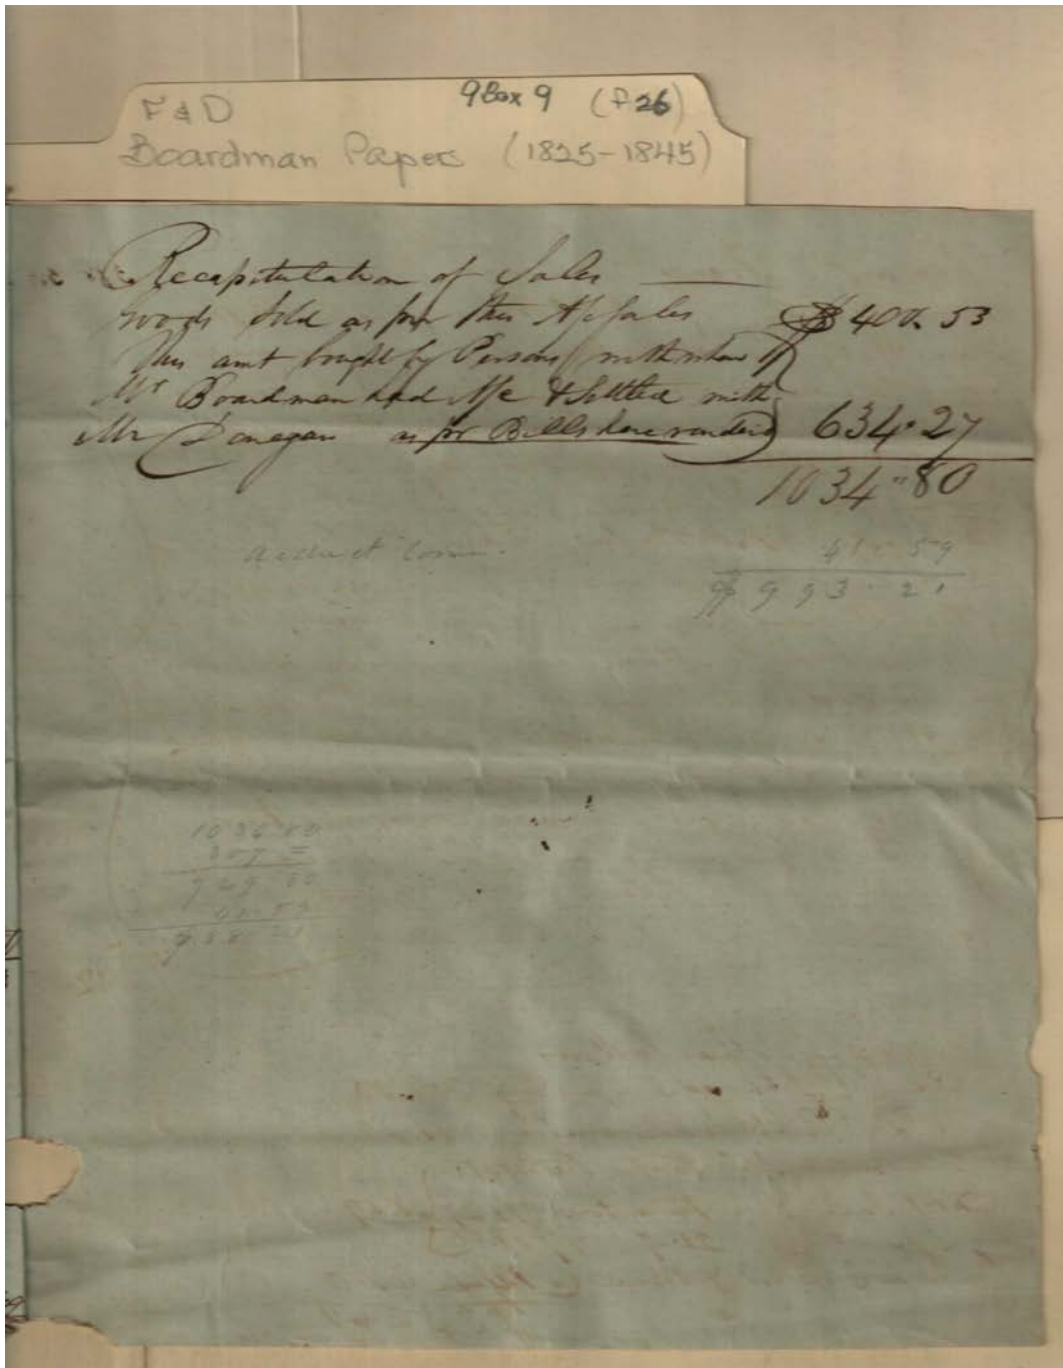 F & D
9 Box 9 (f 26)
Boardman Papers (1825-1845)
Recapitulation of Sales
Goods Sold as per this A/c Sales $400. 53
This amt bought by Persons with whom
Mr Boardman had A/c & Settled with
Mr Donegan as pr Bills here 634.27
1034"80
deduct Com. 41.59
$993.21
1034.80